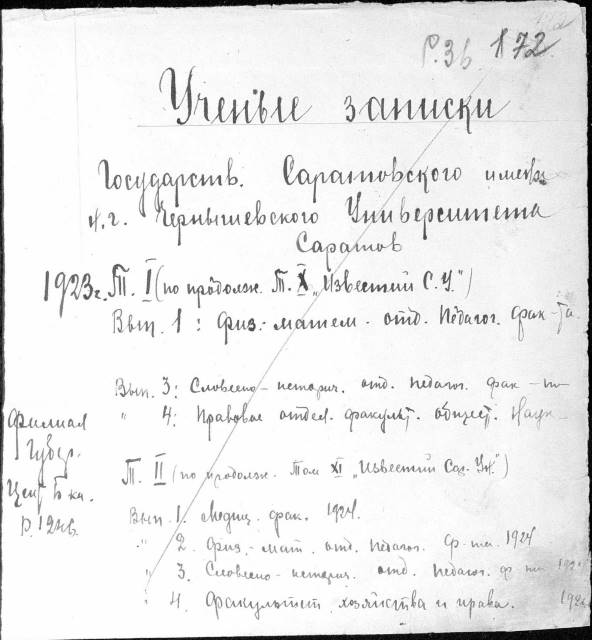 Р.36 172
Ученые записки
Государств. Саратовского имени
Н.Г. Чернышевского Университета
Саратов
1923г. Т. I (по продолж. Т. X „Известий С.У.")
Вып. 1: Физ.-матем. отд. Педагог. фак-та.
Вып. 3: Словесно-историч. отд. Педагог. фак-та
" 4: Правовое отдел. факульт. общест. Наук
Филиал
Губер.
Цент. Б-ка.
Т. II (по продолж. Том XI „Известий Сар. Ун.")
Вып. 1. Медиц. фак. 1924.
" 2. Физ.-мат. отд. Педагог. Ф-та. 1924
" 3. Словесно-историч. отд. Педагог. ф-та
" 4. Факультет хозяйства и права.